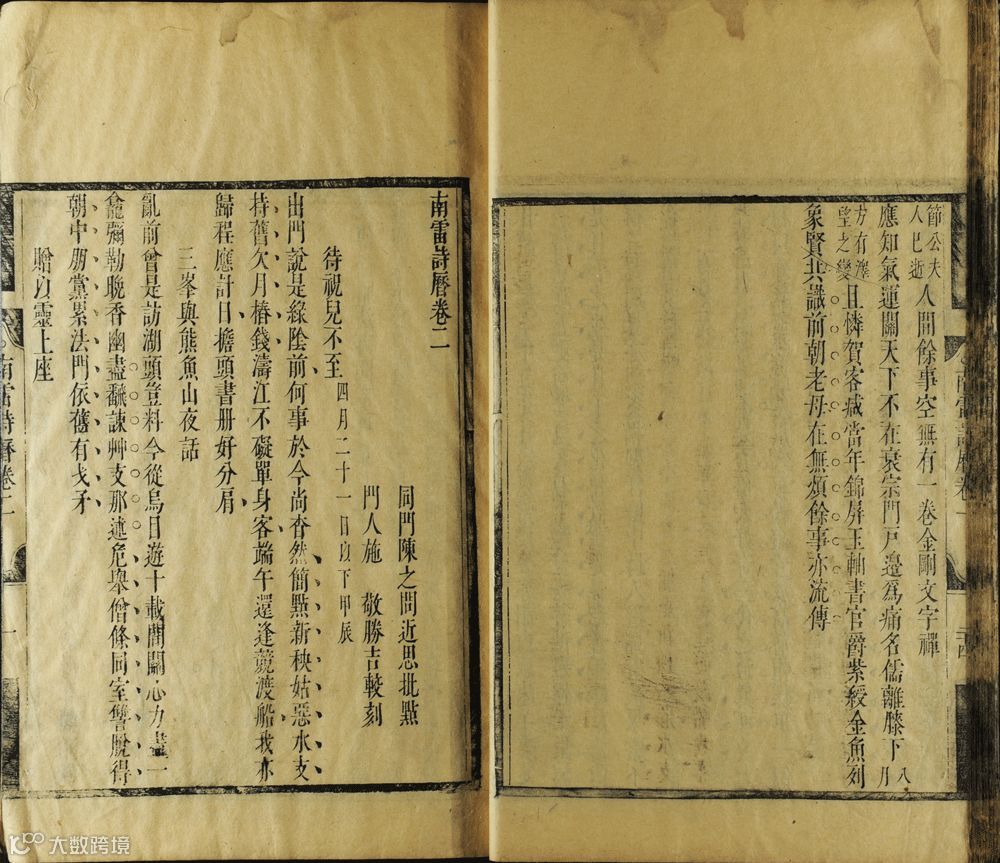 節公夫
人巳逝
人間餘事空無有一卷金剛文字禪
應知氣運關天下不在衰宗門戸邊爲痛名儒離膝下
八月
方有澤
望之變
且憐賀客咸當年錦屏玉軸書官爵紫綬金魚列
象賢共識前朝老母在無煩餘事亦流傳
南雷詩曆卷一
二十四
南雷詩曆卷二
同門陳之問近思批點
門人施 敬勝吉較刻
待視兒不至
四月二十一日㠯下甲辰
出門說是綠陰前何事於今尚杳然簡點新秧姑惡水支
持舊欠月樁錢濤江不礙單身客端午還逢競渡船我亦
歸程應計日擔頭書册好分肩
三峯與熊魚山夜話
亂前曾是訪湖頭豈料今從烏目遊十載間關心力盡一
龕彌勒晚香幽盡飜諫艸支那述危舉僧條同室讐脫得
朝中朋黨累法門依舊有戈矛
贈㠯靈上座
南雷詩曆卷二
一
大数跨境